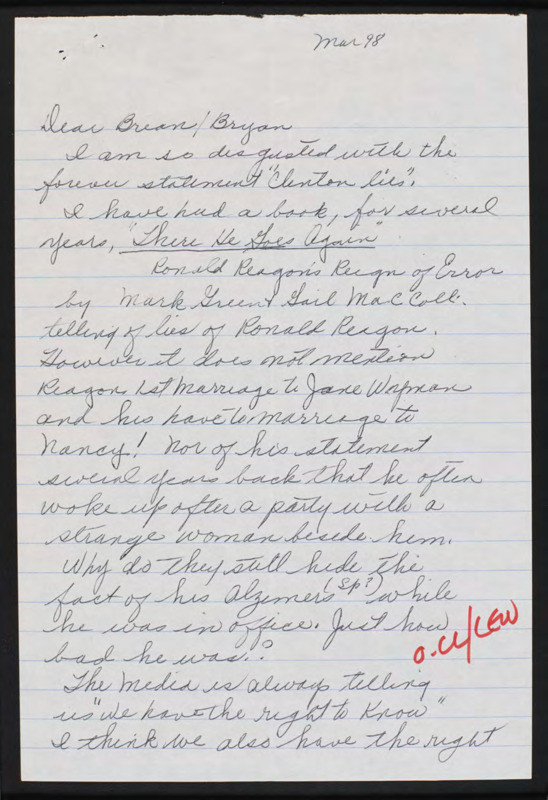 Mar 98
Dear Brian/Bryan
I am so disgusted with the
forever statement "Clinton lies".
I have had a book, for several
years, "There He Goes Again"
Ronald Reagon's Reign of Error
by Mark Green & Gail MacColl.
telling of lies of Ronald Reagon.
However it does not mention
Reagons 1st Marriage to Jane Wyman
and his have to marriage to
Nancy! Nor of his statement
several years back that he often
woke up after a party with a
strange woman beside him.
Why do they still hide the
fact of his Alzimers (sp?) while
he was in office. Just how
bad he was.?
O.K/LEW
The Media is always telling
us "we have the right to Know"
I think we also have the right